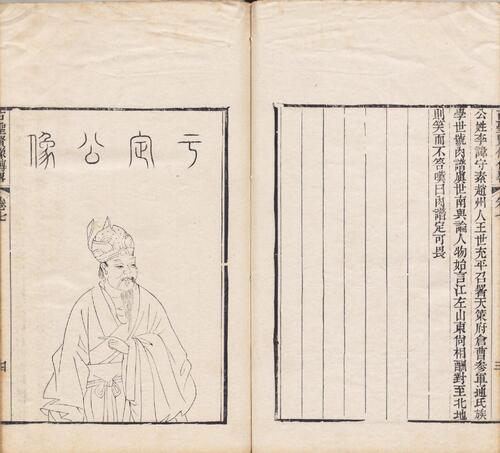 公姓李諱守素趙州人王世充平召署天策府倉曹參軍通氏族
學世號肉譜虞世南與論人物始言江左山東尙相酬對至北地
則笑而不答嘆曰肉譜定可畏
三
于定公像
古聖賢像傳畧
卷七